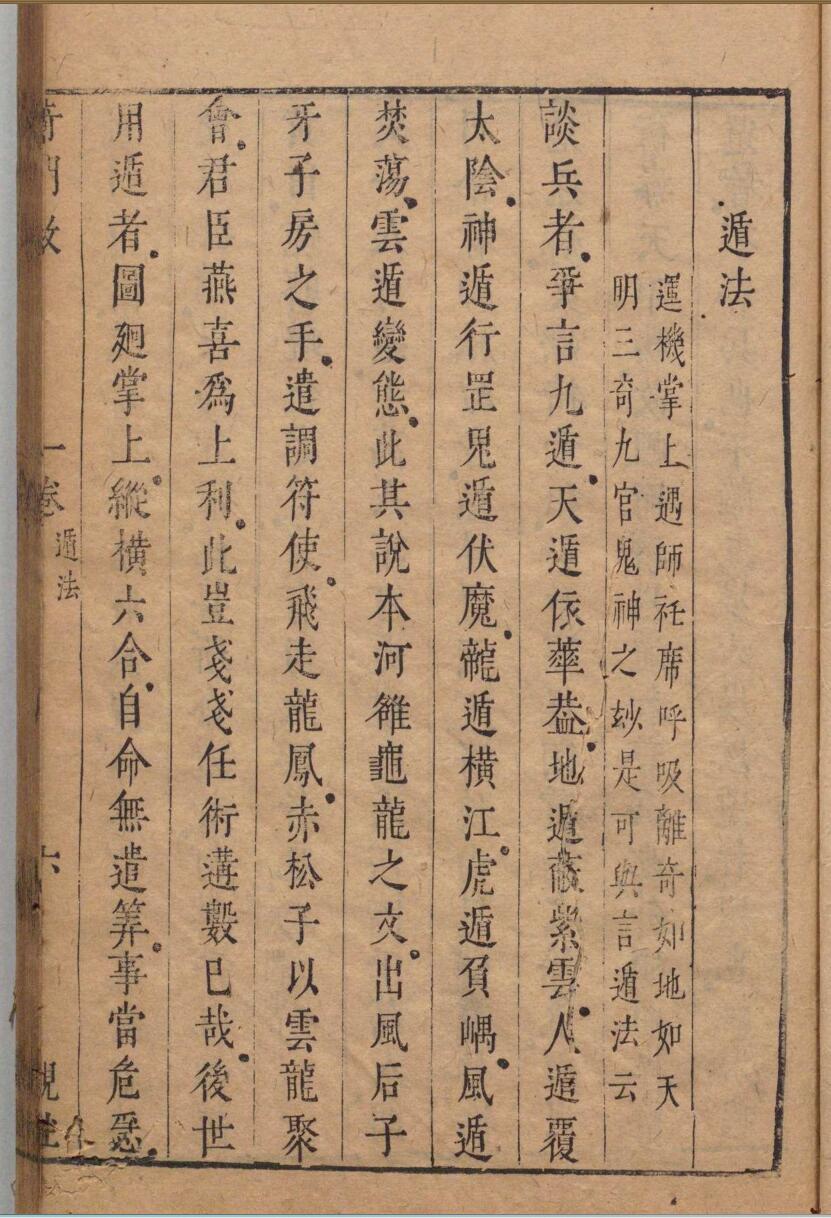 遁法
運機掌上遇師衽席呼吸離奇如地如天
明三奇九官鬼神之玅是可與言遁法云
談兵者爭言九遁天遁依華葢地遁蔽紫雲人遁覆
太陰神遁行罡鬼遁伏魔龍遁橫江虎遁負嵎風遁
焚蕩雲遁變態此其說本河雒龜龍之文出風后子
牙子房之手遣調符使飛走龍鳳赤松子以雲龍聚
會君臣燕喜爲上利此豈戔戔任術遘數已哉後世
用遁者圖廻掌上縱橫六合自命無遺筭事當危惡
一卷
遁法
六